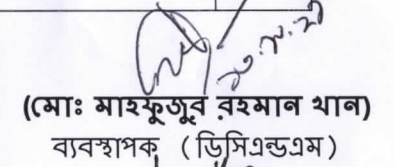 (মোঃ মাহফুজুর রহমান খান)
ব্যবস্থাপক (ডিসিএন্ডএম)